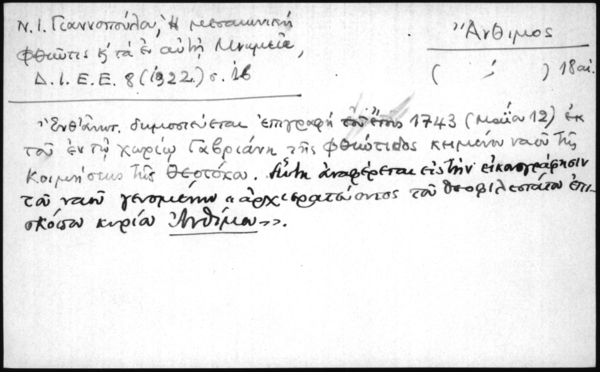 Ν. Ι. Γιαννοπούλου, Ἡ μεσαιωνικὴ
Φθιῶτις κ' τὰ ἐν αὐτῇ Μνημεῖα,
Δ. Ι. Ε. Ε. 8 (1922) σ. 16
Ἄνθιμος
( ; ) 18 αἰ.
Ἐνθ' ἀνωτ. δημοσιεύεται ἐπιγραφὴ τοῦ ἔτους 1743 (Μαΐου 12) ἐκ
τοῦ ἐν τῷ χωρίῳ Γαβριάνη τῆς Φθιώτιδος κειμένου ναοῦ τῆς
Κοιμήσεως τῆς Θεοτόκου. Αὕτη ἀναφέρεται εἰς τὴν εἰκονογράφησιν
τοῦ ναοῦ γενομένην «ἀρχιερατεύοντος τοῦ θεοφιλεστάτου ἐπι-
σκόπου κυρίου Ἀνθίμου».